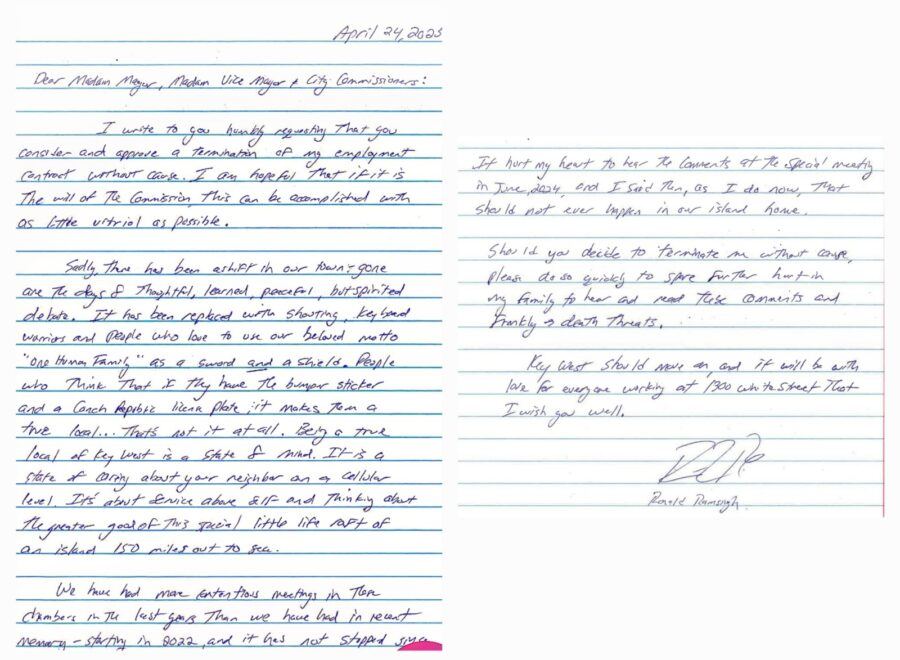 April 24, 2025
Dear Madam Mayor, Madam Vice Mayor & City Commissioners:
I write to you humbly requesting that you
consider and approve a termination of my employment
contract without cause. I am hopeful that if it is
the will of the Commission, this can be accomplished with
as little vitriol as possible.
Sadly, there has been a shift in our town; gone
are the days of thoughtful, learned, peaceful, but spirited
debate. It has been replaced with shouting, keyboard
warriors and people who love to use our beloved motto
"One Human Family" as a sword and a shield. People
who think that if they have the bumper sticker
and a Conch Republic license plate, it makes them a
true local... That's not it at all. Being a true
local of Key West is a state of mind. It is a
state of caring about your neighbor on a cellular
level. It's about service above self and thinking about
the greater good of this special little life raft of
an island 150 miles out to sea.
We have had more contentious meetings in these
chambers in the last years than we have had in recent
memory - starting in 2022, and it has not stopped since
It hurt my heart to hear the comments at the special meeting
in June, 2024, and I said then, as I do now, that
should not ever happen in our island home.
Should you decide to terminate me without cause,
please do so quickly to spare further hurt in
my family to hear and read these comments and
frankly → death threats.
Key West should move on, and it will be with
love for everyone working at 1300 White Street that
I wish you well.
Ronald Ramsingh